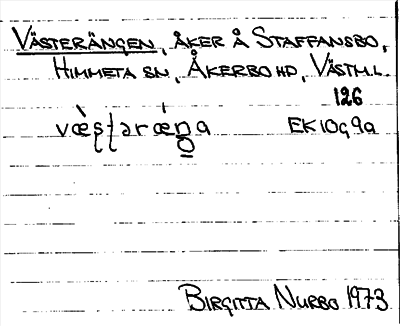 VÄSTERÄNGEN, ÅKER Å STAFFANSBO,
HIMMETA SN, ÅKERBO HD, VÄSTM.L.
126
EK 10g9a
BIRGITTA NURBO 1973